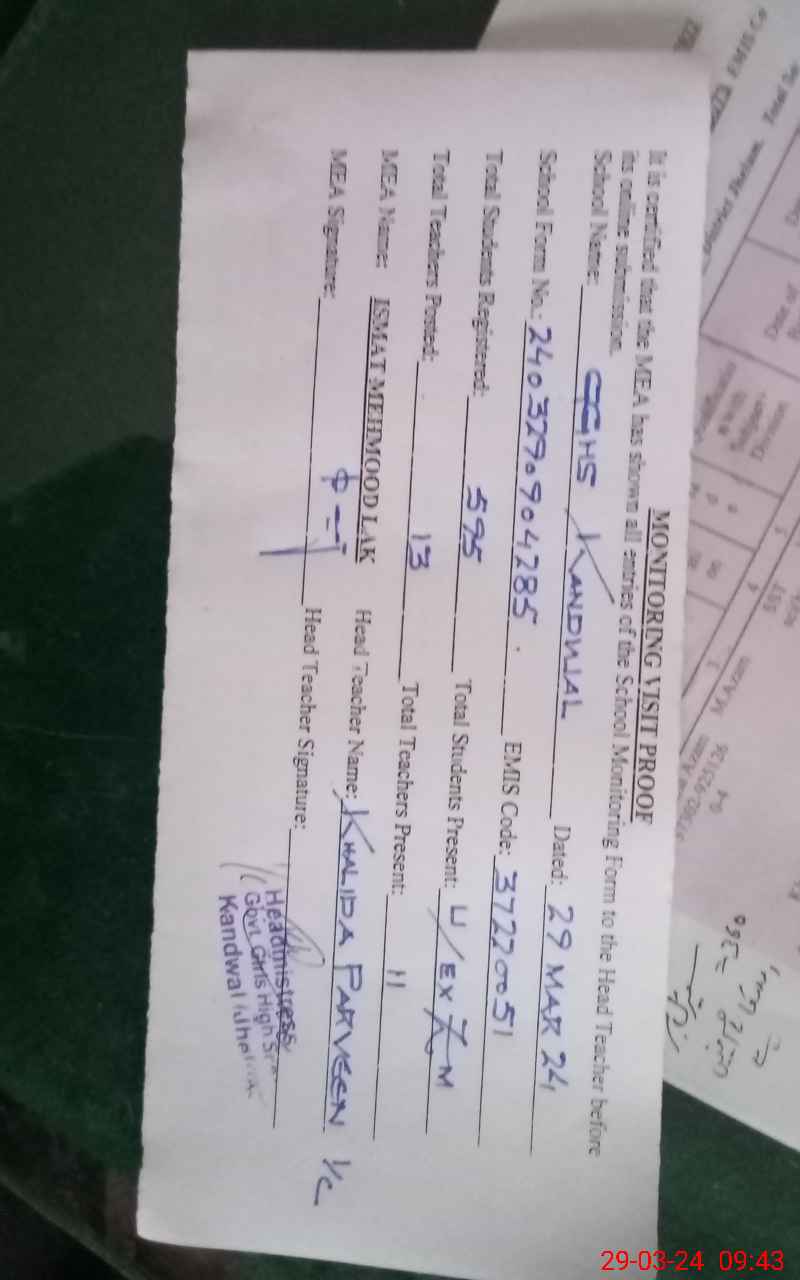 MONITORING VISIT PROOF
It is certified that the MEA has shown all entries of the School Monitoring Form to the Head Teacher before
its online submission.
School Name: GGHS KANDWAL Dated: 29 MAR 24
School Form No.: 2403290904285. EMIS Code: 37220051
Total Students Registered: 595 Total Students Present: U/EXAM
Total Teachers Posted: 13 Total Teachers Present: 11
MEA Name: ISMAT MEHMOOD LAK Head Teacher Name: KHALIDA PARVEEN I/C
MEA Signature: Head Teacher Signature:
Headmistress
Govt. Girls High
Kandwal
District Jhelum.
EMIS Co
Date of
Subject
Division
SST
M.Azam
Azam
0-4
29-03-24 09:43